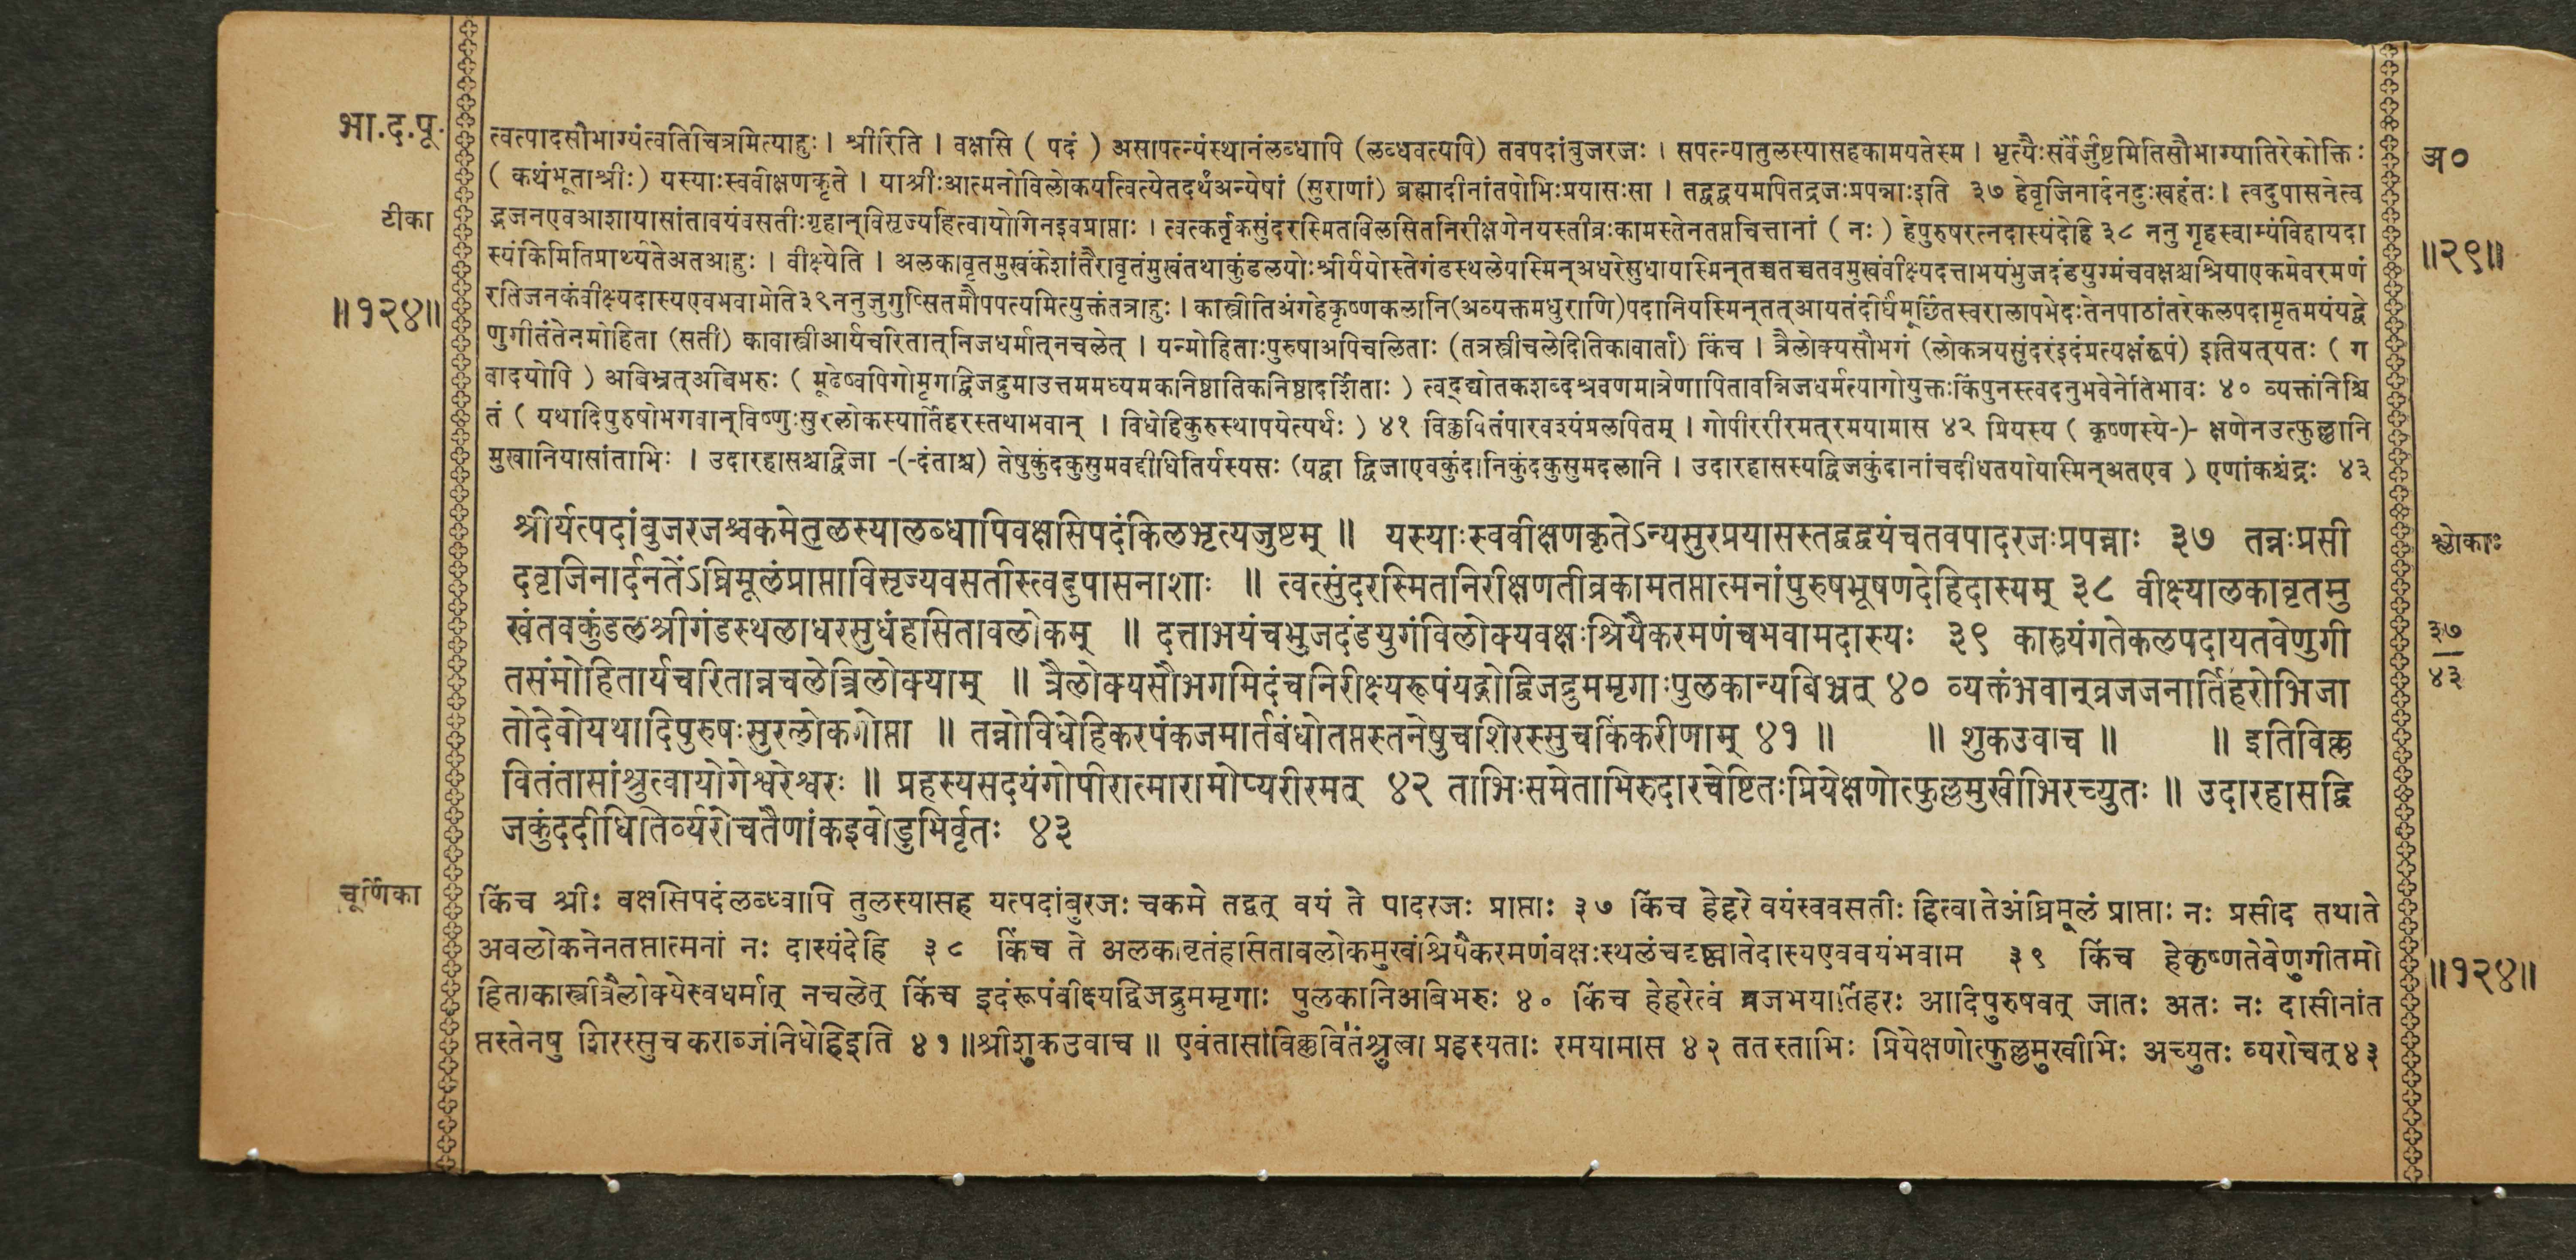 भा.द.पू.
टीका
॥१२४॥
त्वत्पादसौभाग्यंत्वतिचित्रमित्याहुः । श्रीरिति । वक्षसि ( पदं ) असापत्न्यंस्थानंलब्धापि (लब्धवत्यपि) तवपदांबुजरजः । सपत्न्यातुलस्यासहकामयतेस्म । भृत्यैःसर्वैर्जुष्टमितिसौभाग्यातिरेकोक्तिः
( कथंभूताश्रीः) यस्याःस्ववीक्षणकृते । याश्रीःआत्मनोविलोकयत्वित्येतदर्थंअन्येषां (सुराणां) ब्रह्मादीनांतपोभिःप्रयासःसा । तद्वद्वयमपितद्रजःप्रपन्नाःइति ३७ हेवृजिनार्दनदुःखहंतः। त्वदुपासनेत्व
द्भजनएवआशायासांतावयंवसतीःगृहान्विसृज्यहित्वायोगिनइवप्राप्ताः । त्वत्कर्तृकसुंदरस्मितविलसितनिरीक्षणेनयस्तीव्रःकामस्तेनतप्तचित्तानां ( नः ) हेपुरुषरत्नदास्यंदेहि ३८ ननु गृहस्वाम्यंविहायदा
स्यंकिमितिप्रार्थ्यतेअतआहुः । वीक्ष्येति । अलकावृतमुखंकेशांतैरावृतंमुखंतथाकुंडलयोःश्रीर्ययोस्तेगंडस्थलेयस्मिन्अधरेसुधायस्मिन्तच्चतच्चतवमुखंवीक्ष्यदत्ताभयंभुजदंडयुग्मंचवक्षश्चश्रियाएकमेवरमणं
रतिजनकंवीक्ष्यदास्यएवभवामेति३९ननुजुगुप्सितमौपपत्यमित्युक्तंतत्राहुः । कास्त्रीतिअंगहेकृष्णकलानि(अव्यक्तमधुराणि)पदानियस्मिन्तत्आयतंदीर्घंमूर्छितस्वरालापभेदःतेनपाठांतरेकलपदामृतमयंयद्वे
णुगीतंतेनमोहिता (सती) कावास्त्रीआर्यचरितात्निजधर्मात्नचलेत् । यन्मोहिताःपुरुषाअपिचलिताः (तत्रस्त्रीचलेदितिकावार्ता) किंच । त्रैलोक्यसौभगं (लोकत्रयसुंदरंइदंप्रत्यक्षंरूपं) इतियत्यतः ( ग
वादयोपि ) अबिभ्रत्अबिभरुः ( मूढेष्वपिगोमृगद्विजद्रुमाउत्तममध्यमकनिष्ठातिकनिष्ठादर्शिताः ) त्वद्द्योतकशब्दश्रवणमात्रेणापितावन्निजधर्मत्यागोयुक्तःकिंपुनस्त्वदनुभवेनेतिभावः ४० व्यक्तंनिश्चि
तं ( यथादिपुरुषोभगवान्विष्णुःसुरलोकस्यार्तिहरस्तथाभवान् । विधेहिकुरुस्थापयेत्यर्थः ) ४१ विक्लवितंपारवश्यंप्रलपितम् । गोपीररीरमत्रमयामास ४२ प्रियस्य ( कृष्णस्ये-)- क्षणेनउत्फुल्लानि
मुखानियासांताभिः । उदारहासश्चद्विजा -(-दंताश्च) तेषुकुंदकुसुमवद्दीधितिर्यस्यसः (यद्वा द्विजाएवकुंदानिकुंदकुसुमदलानि । उदारहासस्यद्विजकुंदानांचदीधतयोयस्मिन्अतएव ) एणांकश्चंद्रः ४३
श्रीर्यत्पदांबुजरजश्चकमेतुलस्यालब्धापिवक्षसिपदंकिलभृत्यजुष्टम् ॥ यस्याःस्ववीक्षणकृतेऽन्यसुरप्रयासस्तद्वद्वयंचतवपादरजःप्रपन्नाः ३७ तन्नःप्रसी
दवृजिनार्दनतेंऽघ्रिमूलंप्राप्ताविसृज्यवसतीस्त्वदुपासनाशाः ॥ त्वत्सुंदरस्मितनिरीक्षणतीव्रकामतप्तात्मनांपुरुषभूषणदेहिदास्यम् ३८ वीक्ष्यालकावृतमु
खंतवकुंडलश्रीगंडस्थलाधरसुधंहसितावलोकम् ॥ दत्ताभयंचभुजदंडयुगंविलोक्यवक्षःश्रियैकरमणंचभवामदास्यः ३९ कास्त्र्यंगतेकलपदायतवेणुगी
तसंमोहितार्यचरितान्नचलेत्रिलोक्याम् ॥ त्रैलोक्यसौभगमिदंचनिरीक्ष्यरूपंयद्गोद्विजद्रुममृगाःपुलकान्यबिभ्रत् ४० व्यक्तंभवान्व्रजजनार्तिहरोभिजा
तोदेवोयथादिपुरुषःसुरलोकगोप्ता ॥ तन्नोविधेहिकरपंकजमार्तबंधोतप्तस्तनेषुचशिरस्सुचकिंकरीणाम् ४१ ॥ ॥ शुकउवाच ॥ ॥ इतिविक्ल
वितंतासांश्रुत्वायोगेश्वरेश्वरः ॥ प्रहस्यसदयंगोपीरात्मारामोप्यरीरमत् ४२ ताभिःसमेताभिरुदारचेष्टितःप्रियेक्षणोत्फुल्लमुखीभिरच्युतः ॥ उदारहासद्वि
जकुंददीधितिर्व्यरोचतैणांकइवोडुभिर्वृतः ४३
चूर्णिका
किंच श्रीः वक्षसिपदंलब्ध्वापि तुलस्यासह यत्पदांबुरजः चकमे तद्वत् वयं ते पादरजः प्राप्ताः ३७ किंच हेहरे वयंस्ववसतीः हित्वा तेअंघ्रिमूलं प्राप्ताः नः प्रसीद तथाते
अवलोकनेनतप्तात्मनां नः दास्यंदेहि ३८ किंच ते अलकावृतंहसितावलोकमुखंश्रियैकरमणंवक्षःस्थलंचदृष्ट्वातेदास्यएववयंभवाम ३९ किंच हेकृष्णतेवेणुगीतमो
हिताकास्त्रीत्रैलोक्येस्वधर्मात् नचलेत् किंच इदंरूपंवीक्ष्यद्विजद्रुममृगाः पुलकानिअबिभरुः ४० किंच हेहरेत्वं व्रजभयार्तिहरः आदिपुरुषवत् जातः अतः नः दासीनांत
प्तस्तेनषु शिरस्सुच कराब्जंनिधेहिइति ४१ ॥श्रीशुकउवाच ॥ एवंतासांविक्लवितंश्रुत्वा प्रहस्यताः रमयामास ४२ ततस्ताभिः प्रियेक्षणोत्फुल्लमुखीभिः अच्युतः व्यरोचत् ४३
अ०
॥२९॥
श्लोकाः
३७
४३
॥१२४॥